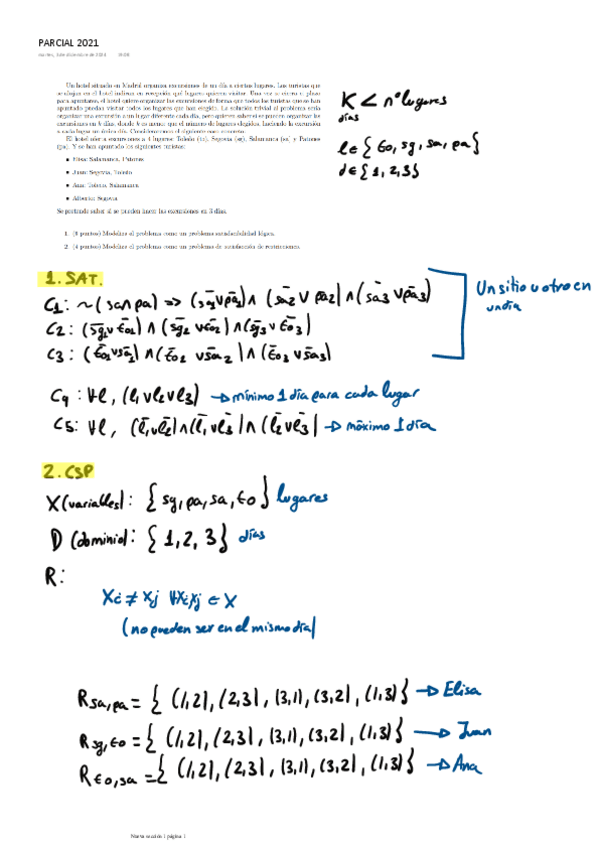 PARCIAL 2021
Un hotel situado en Madrid organiza excursiones de un día a ciertos lugares. Los turistas que
se alojan en el hotel indican en recepción qué lugares quieren visitar. Una vez se cierra el plazo
para apuntarse, el hotel quiere organizar las excursiones de forma que todos los turistas que se han
apuntado puedan visitar todos los lugares que han elegido. La solución trivial al problema sería
organizar una excursión a un lugar diferente cada día, pero quieren saber si se pueden organizar las
excursiones en k días, donde k es menor que el número de lugares elegidos, haciendo la excursión
a cada lugar un único día. Consideraremos el siguiente caso concreto.
El hotel ofrece excursiones a 4 lugares: Toledo (to), Segovia (sg), Salamanca (sa) y Patones
(pa). Y se han apuntado los siguientes turistas:
• Elisa: Salamanca, Patones
• Juan: Segovia, Toledo
• Ana: Toledo, Salamanca
• Alberto: Segovia
Se pretende saber si se pueden hacer las excursiones en 3 días.
1. (3 puntos) Modeliza el problema como un problema de satisfacibilidad lógica.
2. (4 puntos) Modeliza el problema como un problema de satisfacción de restricciones.
K < nº lugares
días
l ∈ { to, sg, sa, pa }
d ∈ { 1, 2, 3 }
1. SAT.
C1: ~(sa∧pa) => (s̅a̅1∨p̅a̅1) ∧ (s̅a̅2 ∨ p̅a̅2) ∧ (s̅a̅3 ∨ p̅a̅3)
C2: (s̅g̅1∨t̅o̅1) ∧ (s̅g̅2 ∨t̅o̅2) ∧ (s̅g̅3 ∨ t̅o̅3)
C3: (t̅o̅1∨s̅a̅1) ∧ (t̅o̅2 ∨s̅a̅2) ∧ (t̅o̅3 ∨s̅a̅3)
Un sitio u otro en
un día
C4: ∀l, (l1∨l2∨l3) → mínimo 1 día para cada lugar
C5: ∀l, (l̅1∨l̅2)∧(l̅1∨l̅3)∧(l̅2∨l̅3) → máximo 1 día
2. CSP
X (variables): { sg, pa, sa, to } lugares
D (dominio): { 1, 2, 3 } días
R:
Xi ≠ Xj ∀xixj ∈ X
(no pueden ser en el mismo día)
Rsa,pa = { (1,2), (2,3), (3,1), (3,2), (1,3) } → Elisa
Rsg,to = { (1,2), (2,3), (3,1), (3,2), (1,3) } → Juan
Rto,sa = { (1,2), (2,3), (3,1), (3,2), (1,3) } → Ana
Nueva sección 1 página 1